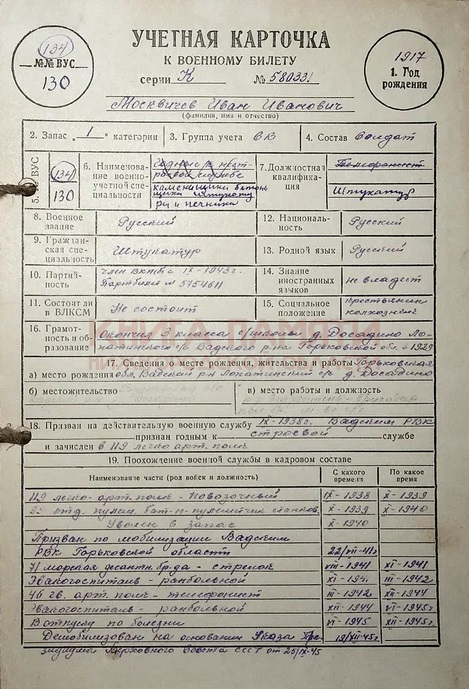 УЧЕТНАЯ КАРТОЧКА
К ВОЕННОМУ БИЛЕТУ
серии К № 580331
(134)
№№ ВУС
130
1917
1. Год рождения
Москвичев Иван Иванович
(фамилия, имя и отчество)
2. Запас 1 категории
3. Группа учета ВК
4. Состав Солдат
5. ВУС
(134)
130
6. Наименование военно-учетной специальности
каменщики бетонщики штукатуры и печники
7. Должностная квалификация
Телефонист
Штукатур
8. Военное звание
Русский
12. Национальность
Русский
9. Гражданская специальность
Штукатур
13. Родной язык
Русский
10. Партийность
член ВКП(б) с IX-1943г.
Партбилет № 5754611
14. Знание иностранных языков
не владеет
11. Состоял ли в ВЛКСМ
Не состоит
15. Социальное положение
крестьянин колхозник
16. Грамотность и образование
Окончил 3 класса с/школы д. Досадино Лопатинского с/с Вадского р-на Горьковской обл. в 1929
17. Сведения о месте рождения, жительства и работы
а) место рождения Горьковская обл. Вадский р-н Лопатинский с/с д. Досадино
б) местожительство
в) место работы и должность
18. Призван на действительную военную службу IX-1938г. Вадским РВК
признан годным к строевой службе
и зачислен в 119 легко-арт. полк
19. Прохождение военной службы в кадровом составе
Наименование части (род войск и должность)
С какого времени
По какое время
119 легко-арт. полк - Повозочный IX-1938 X-1939
отд. пулем. бат-н пулеметчик станков. X-1939 X-1940
Уволен в запас X-1940
Призван по мобилизации Вадским
РВК Горьковской области 22/VII-41г.
71 морская десантн. бр-да - стрелок VIII-1941 XI-1941
Эвакогоспиталь - ранбольной XI-1941 III-1942
46 гв. арт. полк - телефонист III-1942 XII-1944
Эвакогоспиталь - ранбольной XII-1944 VI-1945г.
В отпуску по болезни VI-1945 XII-1945г.
Демобилизован на основании Указа Президиума Верховного Совета СССР от 25/IX-45 19/XII-45г.